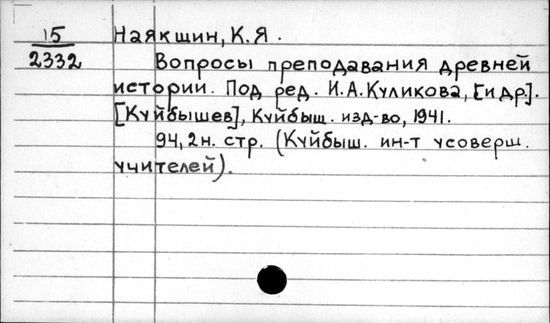 15
2332
Наякшин, К.Я.
Вопросы преподавания древней
истории. Под ред. И.А.Куликова, [и др].
[Куйбышев], Куйбыш. изд-во, 1941.
94, 2н. стр. (Куйбыш. ин-т усоверш.
учителей).